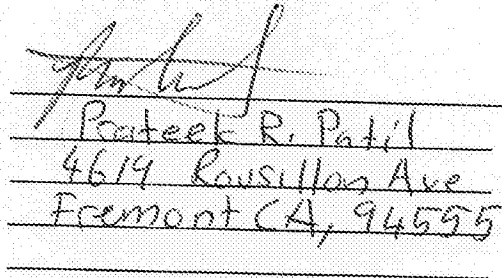 Prateek R. Patil
4614 Rousillon Ave
Fremont CA, 94555